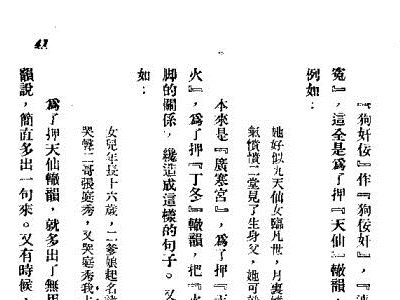 『狗奸佞』作『狗佞奸』，『
寃』，這全是爲了押『天仙』轍韻，
例如：
她好似九天仙女臨凡世，月裏嫦
氣憤憤二堂見了生身父，她可
本來是『廣寒宮』，爲了押『
火』，爲了押『丁冬』轍韻，把『火
脚的關係，纔造成這樣的句子。又
如：
女兒年長十六歲，二爹娘起名
哭聲二哥張庭秀，又哭庭秀我
爲了押天仙轍韻，就多出了無用
韻說，簡直多出一句來。又有時候，